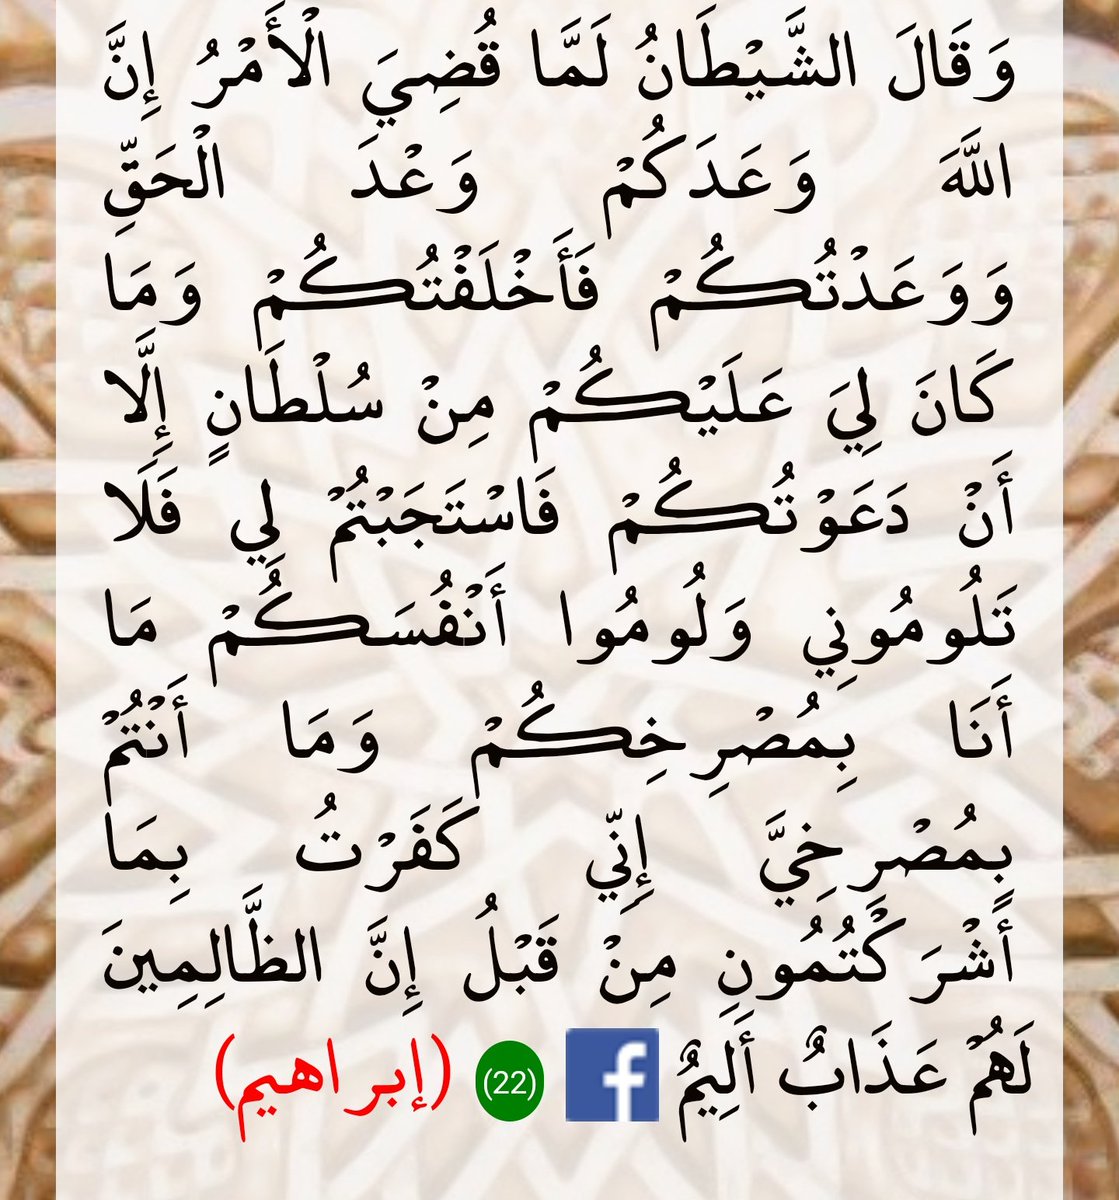 وَقَالَ الشَّيْطَانُ لَمَّا قُضِيَ الْأَمْرُ إِنَّ
اللَّهَ وَعَدَكُمْ وَعْدَ الْحَقِّ
وَوَعَدْتُكُمْ فَأَخْلَفْتُكُمْ وَمَا
كَانَ لِيَ عَلَيْكُمْ مِنْ سُلْطَانٍ إِلَّا
أَنْ دَعَوْتُكُمْ فَاسْتَجَبْتُمْ لِي فَلَا
تَلُومُونِي وَلُومُوا أَنْفُسَكُمْ مَا
أَنَا بِمُصْرِخِكُمْ وَمَا أَنْتُمْ
بِمُصْرِخِيَّ إِنِّي كَفَرْتُ بِمَا
أَشْرَكْتُمُونِ مِنْ قَبْلُ إِنَّ الظَّالِمِينَ
لَهُمْ عَذَابٌ أَلِيمٌ f (22) (إبراهيم)